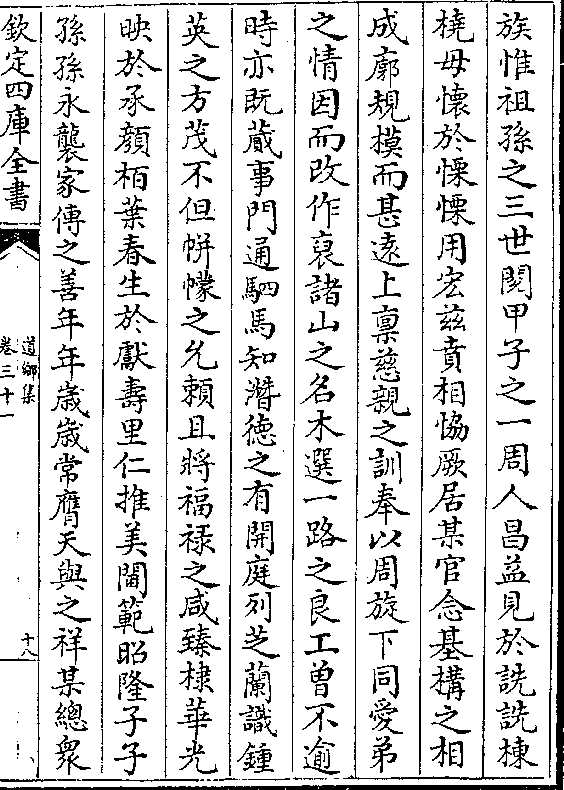 族惟祖孫之三世閱甲子之一周人昌益見於詵詵棟
橈毋懷於慄慄用宏兹賁相協厥居某官念基構之相
成廓規摸而甚逺上稟慈親之訓奉以周旋下同愛弟
之情因而改作裒諸山之名木選一路之良工曽不逾
時亦既蕆事門通駟馬知潛德之有開庭列芝蘭識鍾
英之方茂不但帡幪之允賴且將福禄之咸臻棣華光
映於承顔栢葉春生於獻壽里仁推美閫範昭隆子子
孫孫永襲家傳之善年年歳歳常膺天與之祥某總衆
欽定四庫全書
道鄉集
卷三十一
十八